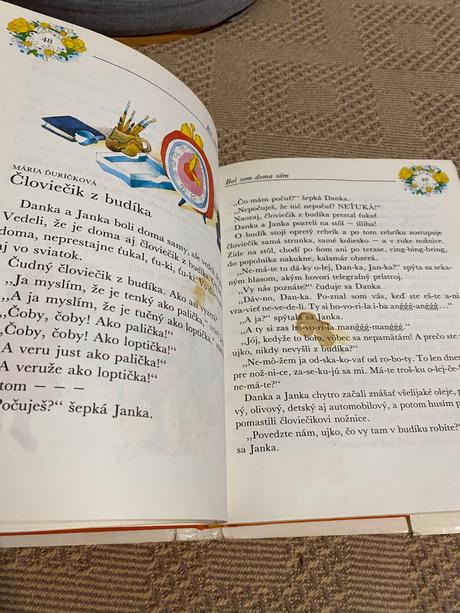 48
MÁRIA ĎURÍČKOVÁ
Človiečik z budíka
Danka a Janka boli doma samy, ale ve
Vedeli, že je doma aj človiečik z budíka
doma, neprestajne ťukal, ťu-ki, ťu-ki. Vo
aj vo sviatok.
Čudný človiečik z budíka. Ako asi vyzerá?
„Ja myslím, že je tenký ako palička.“
„A ja myslím, že je tučný ako loptička.“
„Čoby, čoby! Ako palička!“
„Čoby, čoby! Ako loptička!“
„A veru just ako palička!“
„A veruže ako loptička!“
tom — — —
Počuješ?“ šepká Janka.
Bol som doma sám
49
„Čo mám počuť?“ šepká Danka.
„Nepočuješ, že nič nepočuť? NEŤUKÁ!“
Naozaj, človiečik z budíka prestal ťukať.
Danka a Janka pozreli na stôl — iiiiha!
O budík stojí opretý rebrík a po tom rebríku zostupuje
človiečik samá strunka, samé koliesko — a v ruke nožnice.
Zíde na stôl, chodí po ňom ani po terase, cing-bing-bring,
do popolníka nakukne, kalamár obzerá.
„Ne-má-te tu dá-ky olej, Dan-ka, Jan-ka?“ spýta sa neka-
ným hlasom, akým hovorí telegrafný prístroj.
„Vy nás poznáte?“ čuduje sa Danka.
„Dáv-no, Dan-ka. Po-znal som vás, keď ste eš-te a-ni
vra-vieť ne-ve-de-li. Ty si ho-vo-ri-la i-ba anggg-anggg…“
„A ja?“ spýtala sa Janka.
„A ty si zas ho-vo-ri-la manggg-manggg.“
„Jój, kedyže to bolo, vôbec sa nepamätám! A prečo ste
ujko, nikdy nevyšli z budíka?“
„Ne-mô-žem ja od-ska-ko-vať od ro-bo-ty. To len dnes
pre nož-ni-ce, za-se-ku-jú sa mi. Má-te troš-ku o-lej-če-ka
ne-má-te?“
Danka a Janka chytro začali znášať všelijaké oleje,
vý, olivový, detský aj automobilový, a potom husím
pomastili človiečikovi nožnice.
„Povedzte nám, ujko, čo vy tam v budíku robíte?“
sa Janka.